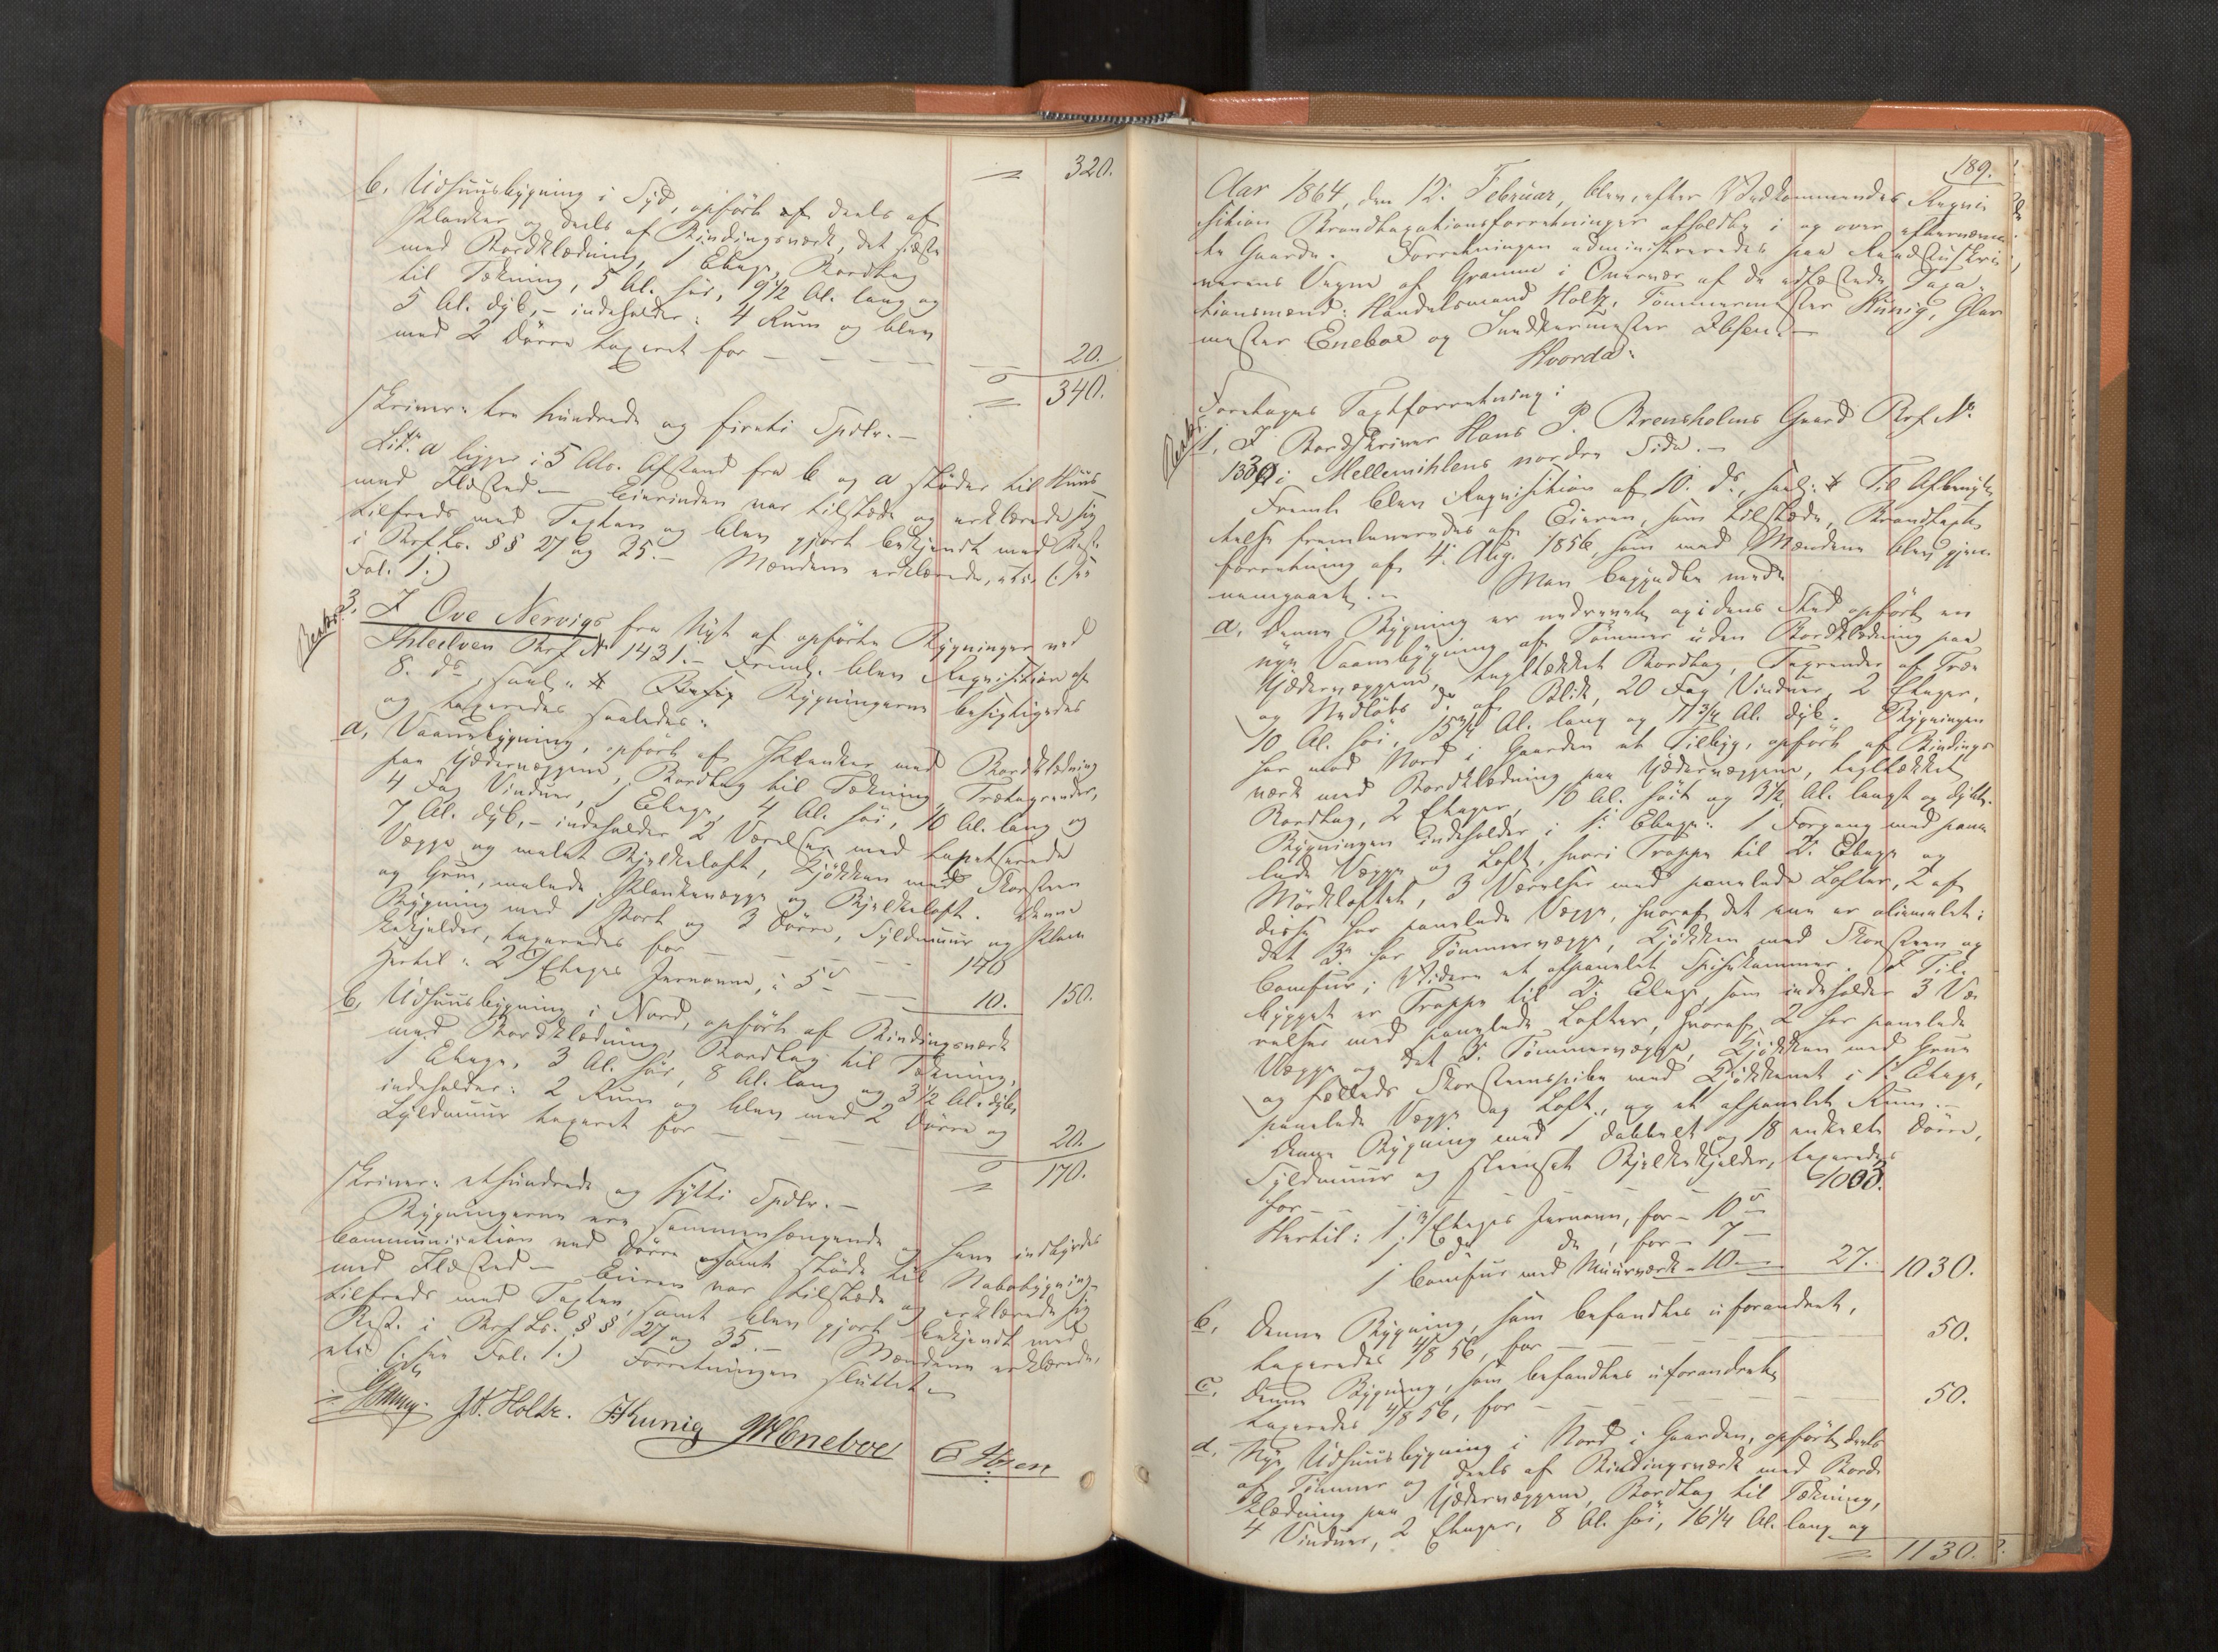 320.
b, Udhuusbygning i Syd, opført af deels af
Planker og deels af Bindingsværk, det sidste
med Bordklædning, 1 Etage, Bordtag
til Tækning, 5 Al. høi, 9 1/2 Al. lang og
5 Al. dyb, – indeholder: 4 Rum og blev
med 2 Dørre taxeret for – – – – 20.
340.
skriver: tre hundrede og fireti Spdlr. –
Litr. a ligger i 5 Als. Afstand fra b og a støder til Huus
med Ildsted – Eierinden var tilstede og erklærede sig
tilfreds med Taxten og blev gjort bekjendt med Best.
i Brf. Lo. §§ 27 og 35. – Mændene erklærede, etc. (: see
Fol. 1 :)
3. I Ove Nervigs fra Nyt af opførte Bygninger ved
Beskr.
Ihleelven Brf. No 1431. – Freml. blev Requisition af
8. ds., saal.: Bygningerne besigtigedes
og taxeredes saaledes:
a, Vaaningsbygning, opført af Planker med Bordklædning
paa Ydervæggene, Bordtag til Tækning, Trætagrender,
4 Fag Vinduer, 1 Etage, 4 Al. høi, 10 Al. lang og
7 Al. dyb, – indeholder 2 Værelser med tapetserede
Vægge og malet Bjelkeloft, Kjøkken med Skorsteen
og Grue, malede Plankevægge og Bjelkeloft. Denne
Bygning med 1 Port og 3 Dørre, Syldmuur og
kjelder, taxeredes for – – – – 140
Hertil: 2 2/Etages Jernovne, à 5 – – 10. 150.
b, Udhuusbygning i Nord, opført af Bindingsværk
med Bordklædning, Bordtag til Tækning,
1 Etage, 3 Al. høi, 8 Al. lang og 3 1/2 Al. dyb,
indeholder: 2 Rum og blev med 2 Dørre og
Syldmuur taxeret for – – – – 20.
170.
skriver: ethundrede og sytti Spdlr. –
Bygningerne ere sammenhængende og have indbyrdes
Communication ved Dørre samt støde til Nabobygning
med Ildsted – Eieren var tilstede og erklærede sig
tilfreds med Taxten, samt blev gjort bekjendt med
Best. i Brf. Lo. §§ 27 og 35. – Mændene erklærede,
etc. (: see Fol. 1 :) Forretningen sluttet –
Gramm. J. Holtz. Kunig Eneboe Ibsen
189.
Aar 1864, den 12. Februar, blev, efter Vedkommendes Requi-
sition Brandtaxationsforretninger afholdte i og over efternævn-
te Gaarde. Forretningen administreredes paa Raadstuskri-
verens Vegne af Gramm i Overvær af de edfæstede Taxa-
tionsmænd: Handelsmand Holtz, Tømmermester Kunig, Glar-
mester Eneboe og Snedkermester Ibsen. –
Hvorda:
Foretages Taxtforretning:
Beskr.
1. I Bordskriver Hans P. Brensholms Gaard Brf. No.
1339 i Mellemihlens nordre Side. –
Freml. blev Requisition af 10. ds., saal.: Til Afbenyt-
telse fremlevereredes af Eieren, som tilstede, Brandtaxt-
forretning af 4. Aug. 1856, som med Mændene blev gjen-
nemgaaet. – Man begyndte med
a. Denne Bygning er nedrevet og i dens Sted opført en
nye Vaaningsbygning af Tømmer uden Bordklædning paa
Ydervæggene, tegltækket Bordtag, Tagrender af Træ
og Nedløbs do af Blik, 20 Fag Vinduer, 2 Etager,
10 Al. høi, 15 3/4 Al. lang og 11 3/4 Al. dyb. Bygningen
har mod Nord i Gaarden et Tilbyg, opført af Bindings-
værk med Bordklædning paa Ydervæggene, tegltækket
Bordtag, 2 Etager, 10 Al. høit og 3 1/2 Al. langt og dybt.
Bygningen indeholder i 1. Etage: 1 Forgang med pane-
lede Vægge og Loft, hvori Trappe til 2. Etage og
Mørkloftet, 3 Værelser med panelede Lofter, 2 af
disse har panelede Vægge, hvoraf det ene er oliemalet;
det 3. har Tømmervægge, Kjøkken med Skorsteen og
Comfur; Videre et afpanelet Spisekammer. I Til-
bygget er Trappe til 2. Etage, som indeholder 3 Væ-
relser med panelede Lofter, hvoraf 2 har panelede
Vægge og det 3. Tømmervægge, Kjøkken med Grue
og fælleds Skorsteenspibe med Kjøkkenet i 1. Etage,
panelede Vægge og Loft, og et afpanelet Rum. –
Denne Bygning med 1 dobbelt og 18 enkelte Dørre,
Syldmuur og Bjelkekjelder, taxeredes
for – – – 1003.
Hertil: 1 3/Etages Jernovn, for – 10
1 2 do do, for – 7 –
1 Comfur med Muurværk – 10. – 27. 1030.
b, Denne Bygning, som befandtes uforandret,
taxeredes 4/8 56, for – – – 50.
c, Denne Bygning, som befandtes uforandret,
taxeredes 4/8 56, for – – – 50.
d, Nye Udhuusbygning i Nord i Gaarden, opført deels
af Tømmer og deels af Bindingsværk med Bord-
klædning paa Ydervæggene, Bordtag til Tækning,
4 Vinduer, 2 Etager, 8 Al. høi, 16 1/4 Al. lang og
1130.